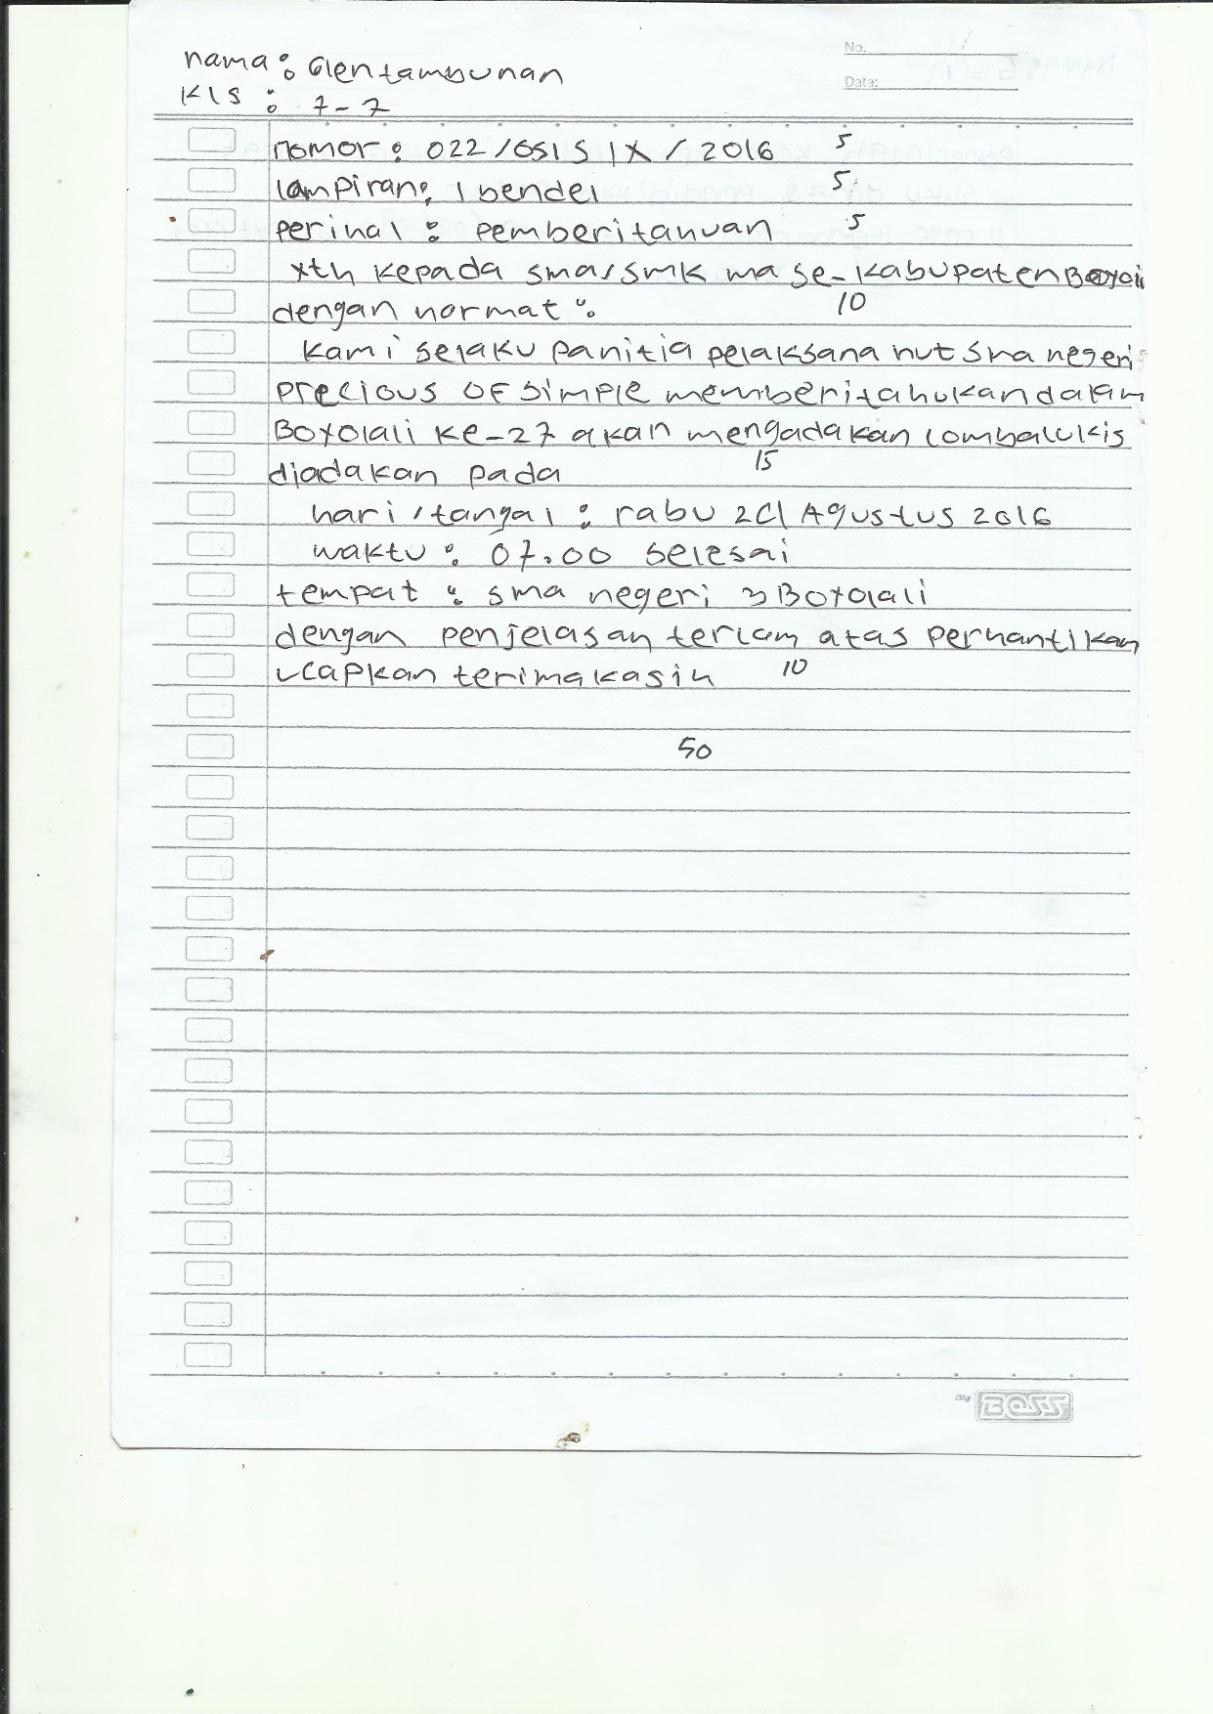 No.
nama : Glentambunan
Date:
Kls : 7-7
nomor : 022/OSIS IX / 2016 5
lampiran : 1 bendel 5
perihal : pemberitahuan 5
yth kepada sma/smk ma se-kabupaten
dengan hormat : 10
kami selaku panitia pelaksana hut sma negeri
precious OF simple memberitahukan dalam
Boyolali ke-27 akan mengadakan lomba lukis
diadakan pada 15
hari/tangal : rabu Agustus 2016
waktu : 07.00 selesai
tempat : sma negeri 3 Boyolali
dengan penjelasan terlam atas perhantikan
ucapkan terimakasih 10
50
Big BOSS